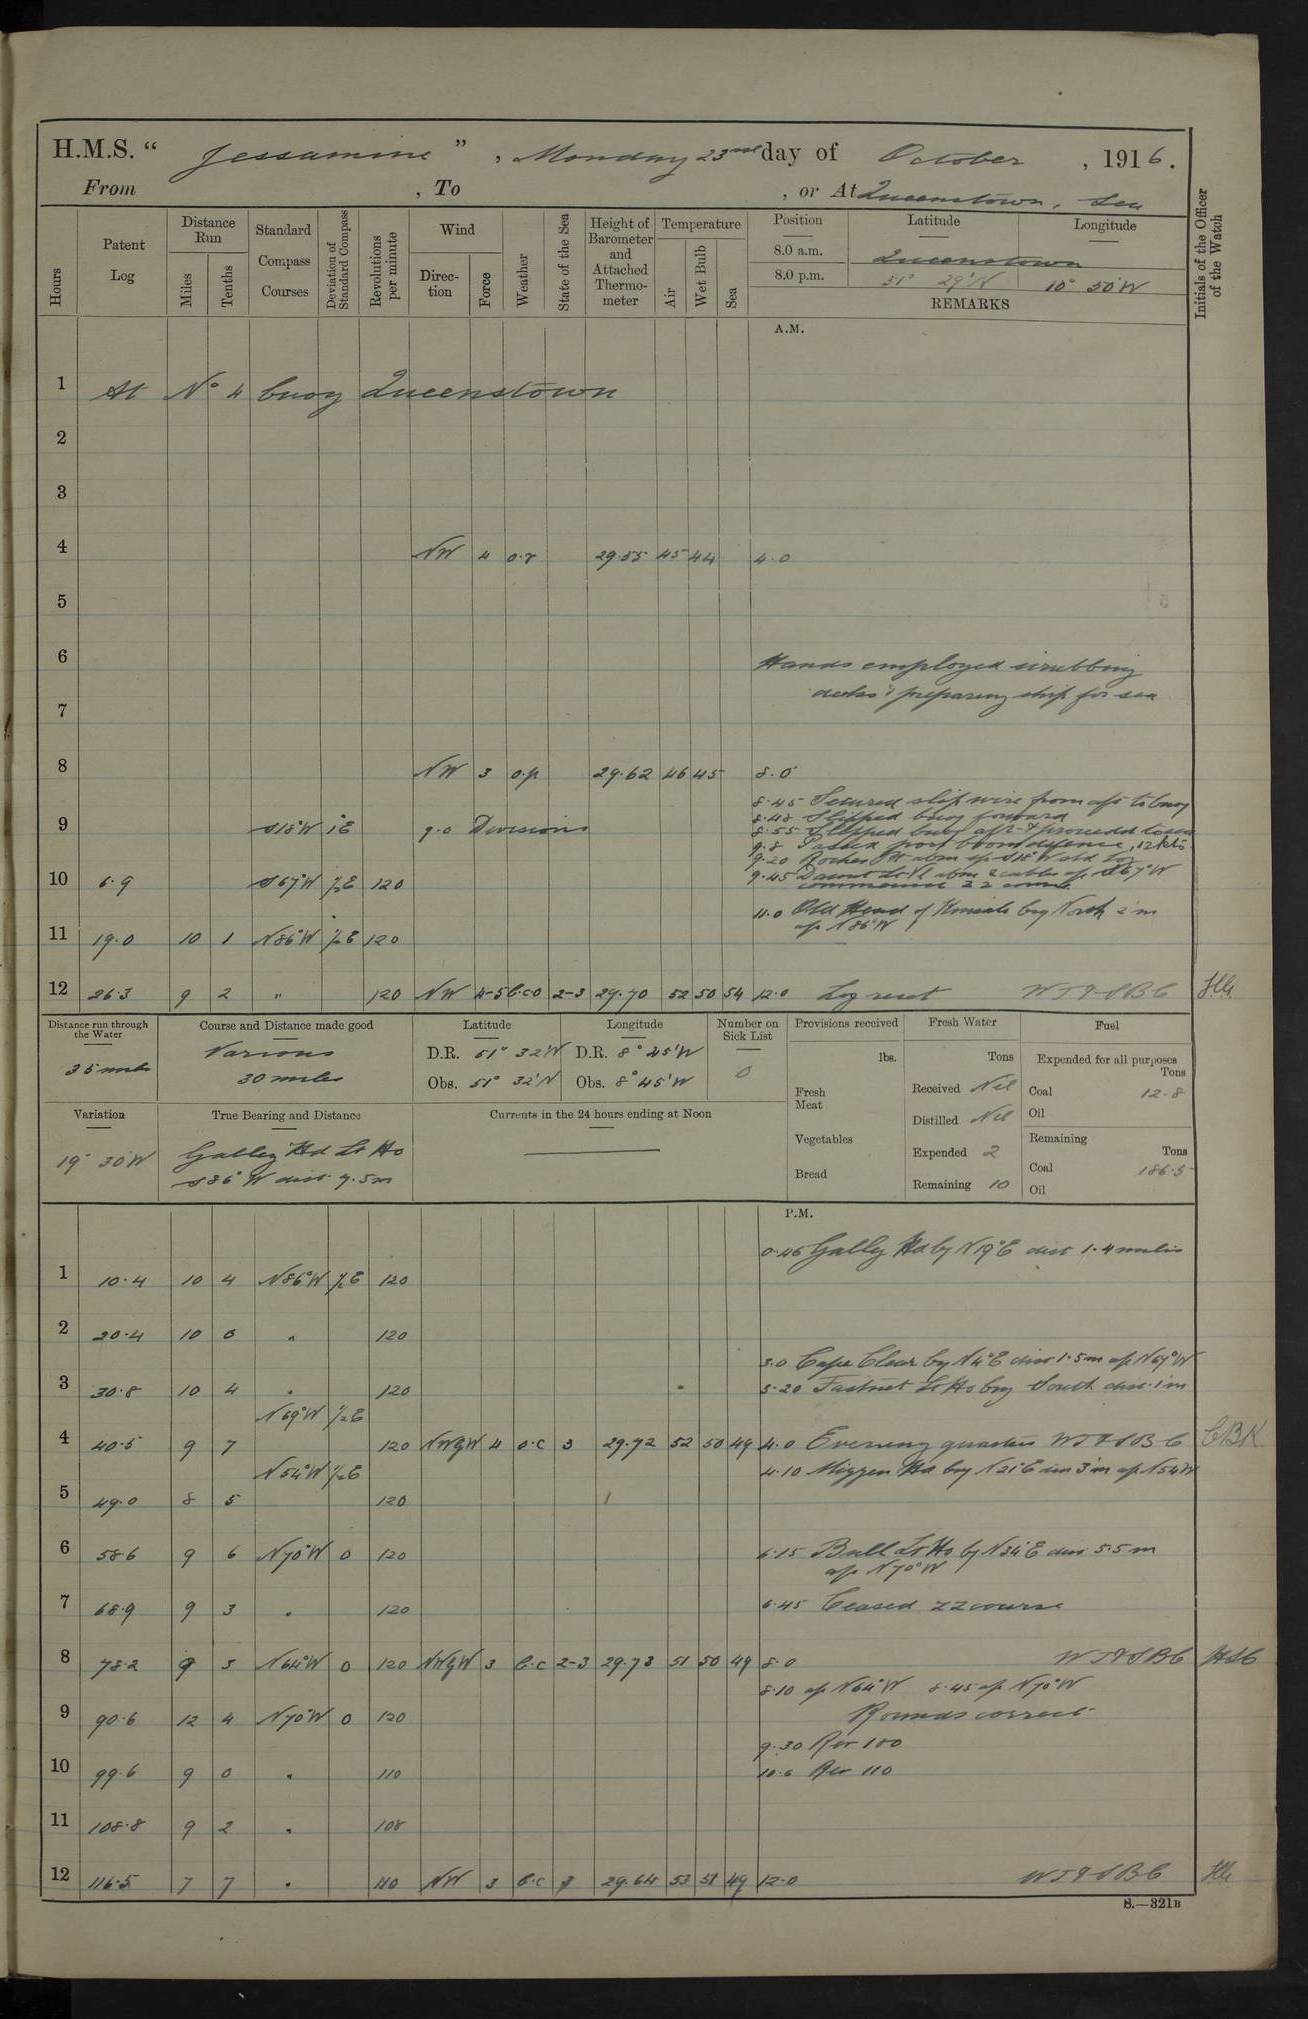 H.M.S. “ Jessamine ” , Monday 23rd day of October , 1916.
From , To , or At Queenstown, Sea
Hours
Patent Log
Distance Run
Miles
Tenths
Standard Compass Courses
Deviation of Standard Compass
Revolutions per minute
Wind
Direction
Force
Weather
State of the Sea
Height of Barometer and Attached Thermometer
Temperature
Air
Wet Bulb
Sea
Position Latitude Longitude
8.0 a.m. Queenstown
8.0 p.m. 51° 29'N 10° 50'W
REMARKS
Initials of the Officer of the Watch
A.M.
1 At No 4 buoy Queenstown
2
3
4 NW 4 o.r 29.55 45 44 4.0
5
6 Hands employed scrubbing
decks & preparing ship for sea
7
8 NW 3 o.p 29.62 46 45 8.0
8.45 Secured slip wire from aft to buoy
8.48 Slipped buoy forward
9 S18°W 1°E 9.0 Divisions 8.55 Slipped buoy aft & proceeded to sea
9.8 Passed port boom defence, 12 kts
9.20 Roches Pt abm a/c S18°W std log
10 6.9 S67°W ½E 120 9.45 Daunt Lt Vl abm 2 cables a/c S67°W
commenced ZZ course
11.0 Old Head of Kinsale brg North 2'm
a/c N86°W
11 19.0 10 1 N86°W ½E 120
12 26.3 9 2 " 120 NW 4-5 b.c.o 2-3 29.70 52 50 54 12.0 Log reset WT & SBC
Distance run through the Water
35 miles
Course and Distance made good
Various
30 miles
Latitude
D.R. 51° 32'N
Obs. 51° 32'N
Longitude
D.R. 8° 45'W
Obs. 8° 45'W
Number on Sick List
0
Provisions received
lbs.
Fresh Meat
Vegetables
Bread
Fresh Water
Tons
Received Nil
Distilled Nil
Expended 2
Remaining 10
Fuel
Expended for all purposes
Tons
Coal 12.8
Oil
Remaining
Tons
Coal 186.5
Oil
Variation
19° 30'W
True Bearing and Distance
Galley Hd Lt Ho
S86°W dist 9.5m
Currents in the 24 hours ending at Noon
P.M.
0.46 Galley Hd by N19°E dist 1.4 miles
1 10.4 10 4 N86°W ½E 120
2 20.4 10 0 " 120
3.0 Cape Clear by N4°E dist 1.5m a/c N69°W
3 30.8 10 4 " 120 3.20 Fastnet Lt Ho brg South dist 1m
N69°W ½E
4 40.5 9 7 120 NWbyW 4 o.c 3 29.72 52 50 49 4.0 Evening quarters WT & SBC CBK
N54°W ½E 4.10 Mizzen Hd brg N21°E dist 3'm a/c N54°W
5 49.0 8 5 120
6 58.6 9 6 N70°W 0 120 6.15 Bull Lt Ho by N34°E dist 5.5m
a/c N70°W
7 68.9 9 3 " 120 6.45 Ceased ZZ course
8 78.2 9 3 N64°W 0 120 NWbyW 3 b.c 2-3 29.73 51 50 49 8.0 WT & SBC
8.10 a/c N64°W 8.45 a/c N70°W
9 90.6 12 4 N70°W 0 120 Rounds correct
9.30 Rev 100
10 99.6 9 0 " 110 10.6 Rev 110
11 108.8 9 2 " 108
12 116.5 7 7 " 110 NW 3 b.c 3 29.64 53 51 49 12.0 WT & SBC
S.—321B